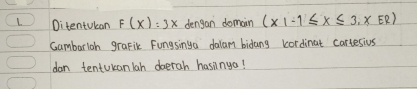 1. Ditentukan F(X) = 3X dengan domain (X | -1 ≤ X ≤ 3, X ER)
Gambarlah grafik Fungsinya dalam bidang kordinat Cartesius
dan tentukanlah daerah hasilnya!